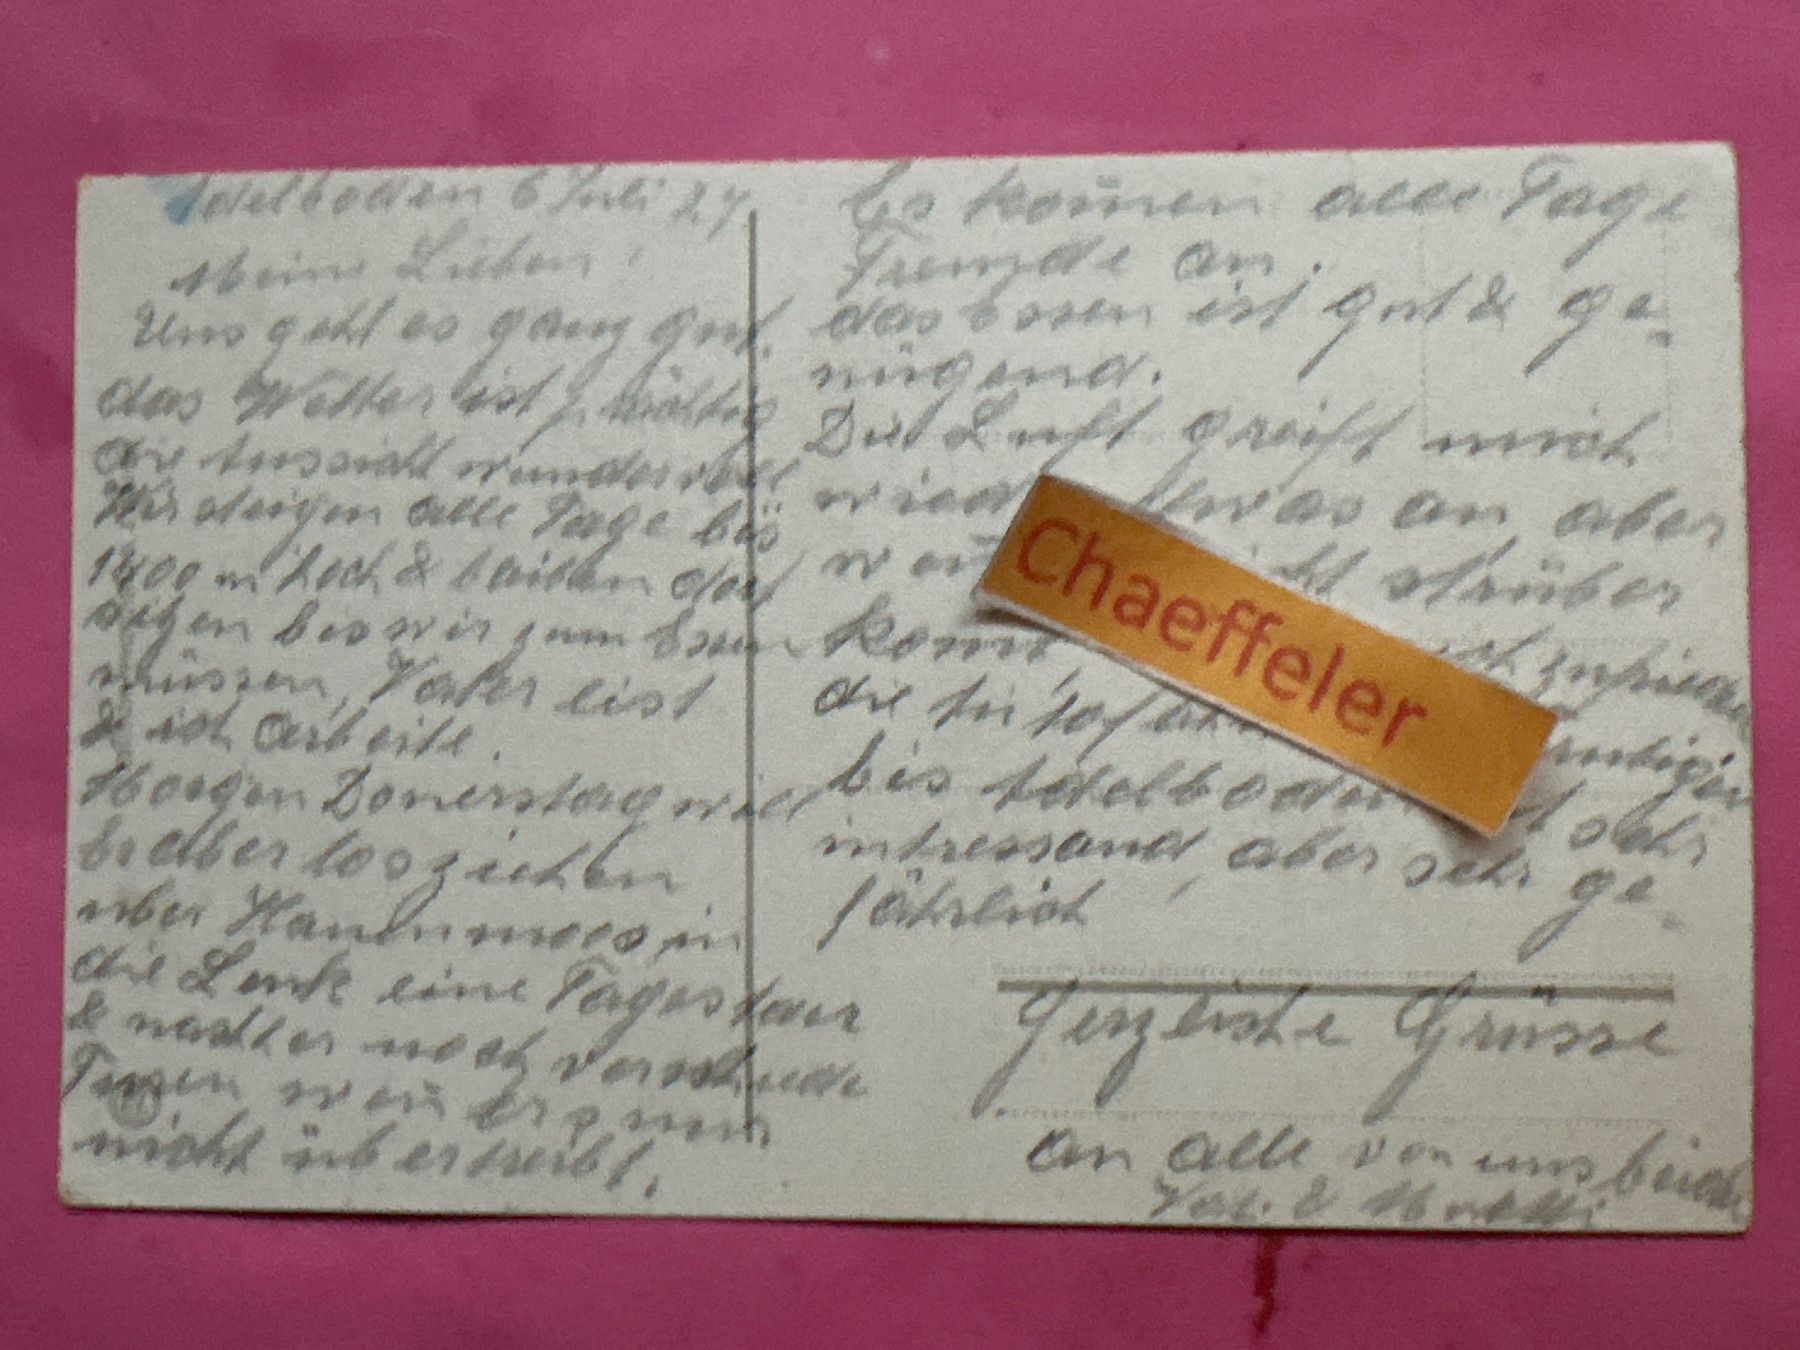 Adelboden 6 Juli 27
Meine Lieben!
Uns geht es ganz gut,
das Wetter ist prächtig
die Aussicht wundervoll
Wir steigen alle Tage bis
1400 m hoch & bleiben dort
sitzen bis wir zum Essen
müssen, Vater list
& ich arbeite.
Morgen Donerstag will
Er aber los ziehen
über Hanenmoos in
die Lenk eine Tagestour
& nachher noch verschiede
Turen wen̄ ers nur
nicht übertreibt.
Es kom̄en alle Tage
Fremde an.
das Essen ist gut & ge-
nügend.
Die Luft greift mich
an aber
strüber
zufrieden
die
bis Adelboden sehr
intressand, aber sehr ge-
fährlich
Herzliche Grüsse
an alle von uns beiden
Vat. & Mutti
Chaeffeler